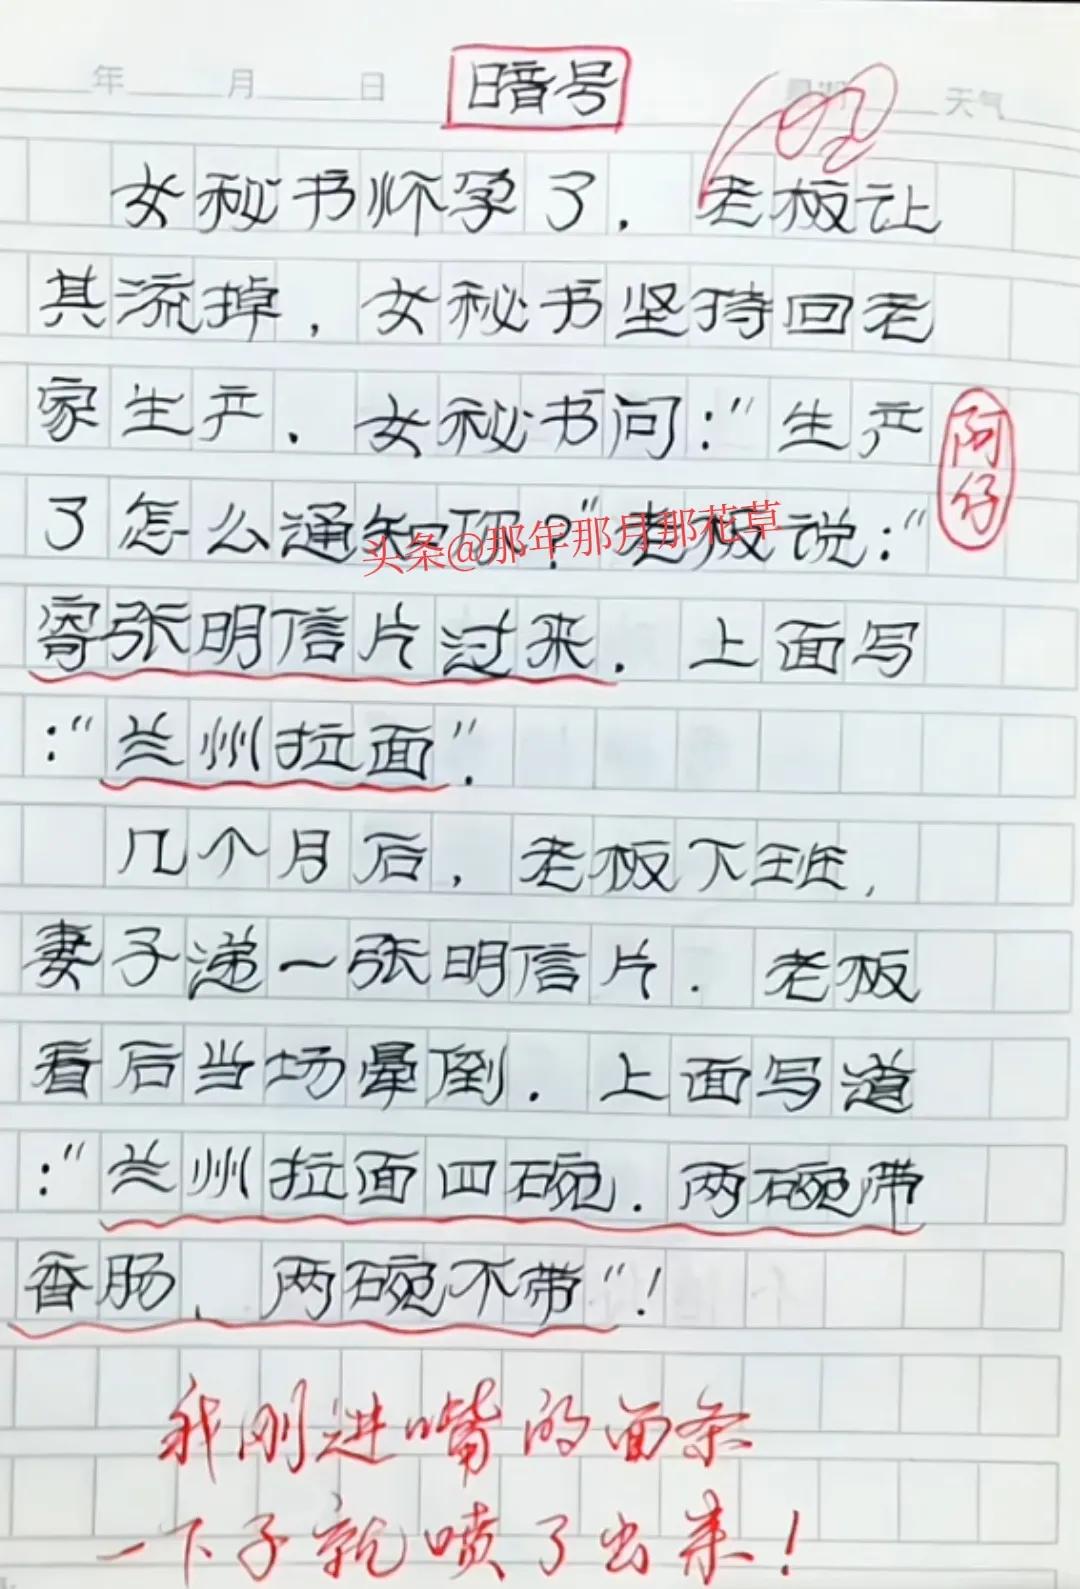 年 月 日 暗号 星期 天气
女秘书怀孕了. 老板让
其流掉, 女秘书坚持回老
家生产. 女秘书问:"生产
阿仔
了怎么通知你?"老板说:"
头条@那年那月那花草
寄张明信片过来. 上面写
:"兰州拉面".
几个月后, 老板下班,
妻子递一张明信片. 老板
看后当场晕倒. 上面写道
:"兰州拉面四碗. 两碗带
香肠、两碗不带"!
我刚进嘴的面条
一下子就喷了出来!